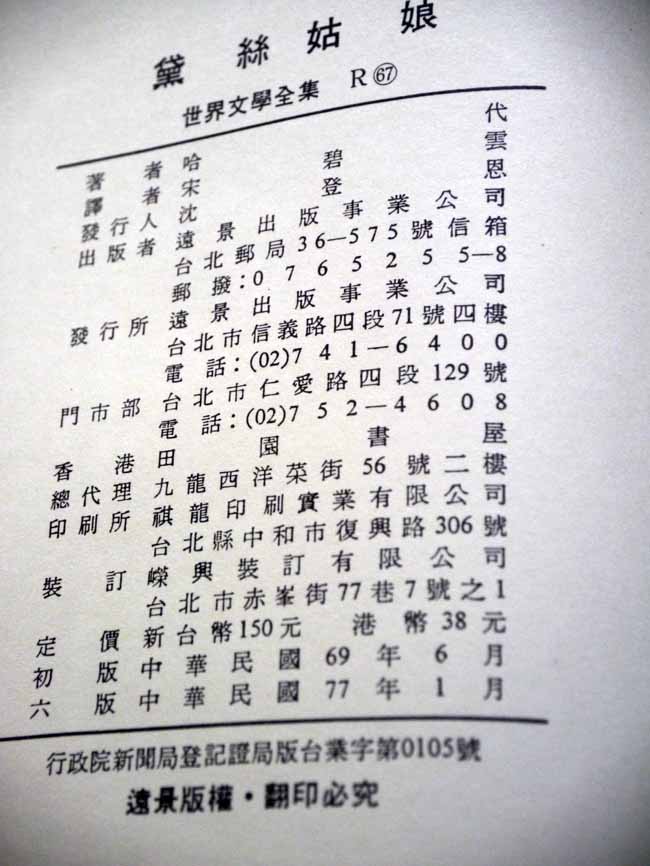 黛絲姑娘
世界文學全集 R67
著者哈代
譯者宋碧雲
發行人沈登恩
出版者遠景出版事業公司
台北郵局36—575號信箱
郵撥：0765255—8
發行所遠景出版事業公司
台北市信義路四段71號四樓
電話：(02)741—6400
門市部台北市仁愛路四段129號
電話：(02)752—4608
香港田園書屋
總代理九龍西洋菜街56號二樓
印刷所祺龍印刷實業有限公司
台北縣中和市復興路306號
裝訂嶸興裝訂有限公司
台北市赤峯街77巷7號之1
定價新台幣150元 港幣38元
初版中華民國69年6月
六版中華民國77年1月
行政院新聞局登記證局版台業字第0105號
遠景版權・翻印必究